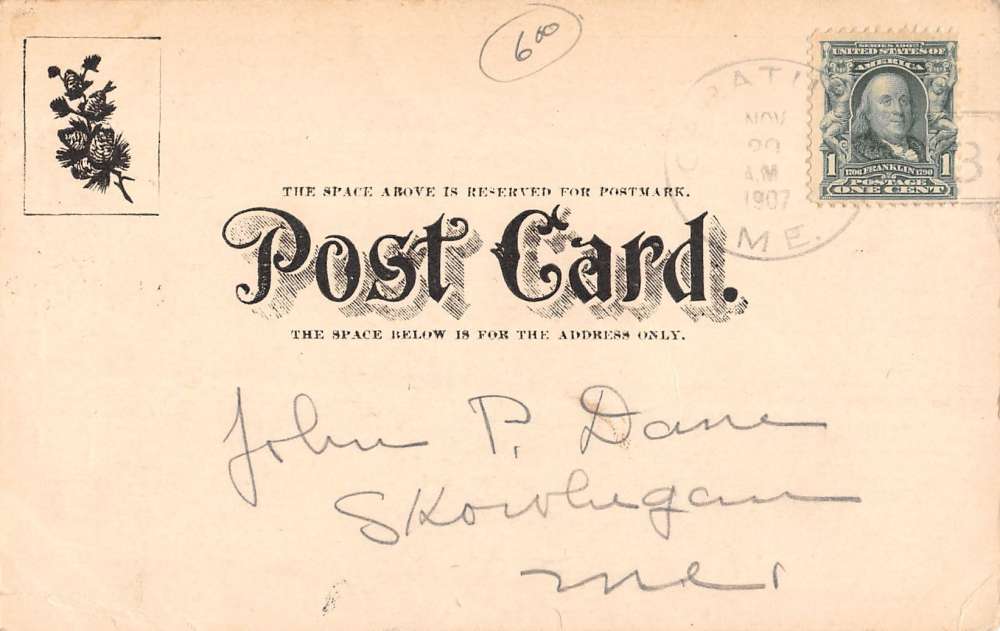 6 00
SERIES 1902
UNITED STATES OF
AMERICA
1 1
1706 FRANKLIN 1790
POSTAGE
ONE CENT
NOV
A.M
1907
ME.
3
THE SPACE ABOVE IS RESERVED FOR POSTMARK.
Post Card.
THE SPACE BELOW IS FOR THE ADDRESS ONLY.
John P. Dane
Skowhegan
Me.